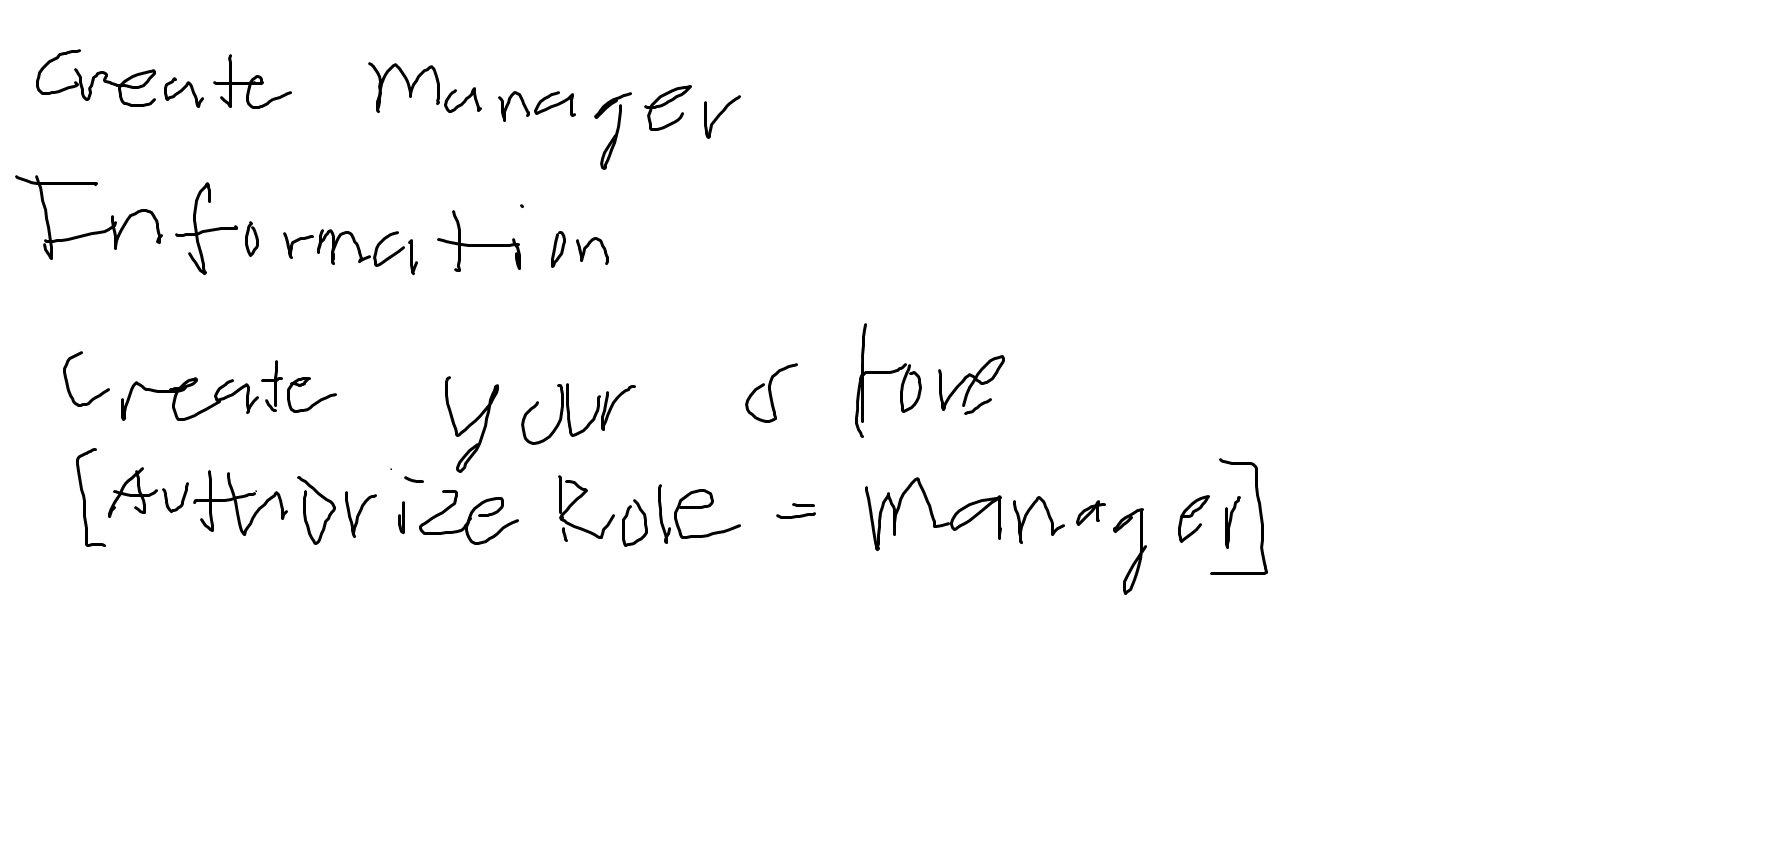 Create Manager
Information
Create your store
[Authorize Role = Manager]